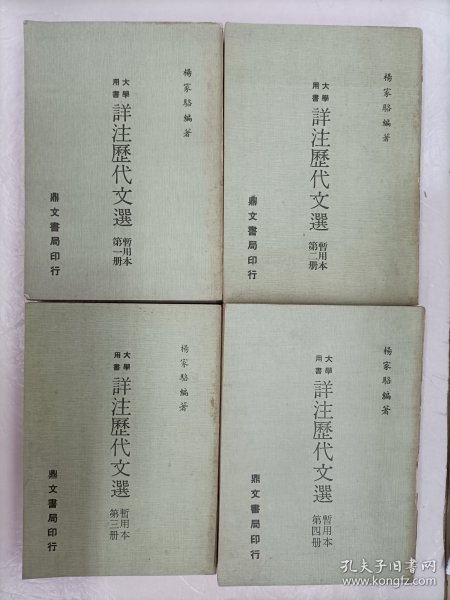 楊家駱編著
大學
用書
詳注歷代文選
暫用本
第一册
鼎文書局印行
楊家駱編著
大學
用書
詳注歷代文選
暫用本
第二册
鼎文書局印行
楊家駱編著
大學
用書
詳注歷代文選
暫用本
第三册
鼎文書局印行
楊家駱編著
大學
用書
詳注歷代文選
暫用本
第四册
鼎文書局印行
孔夫子旧书网
book.kongfz.com